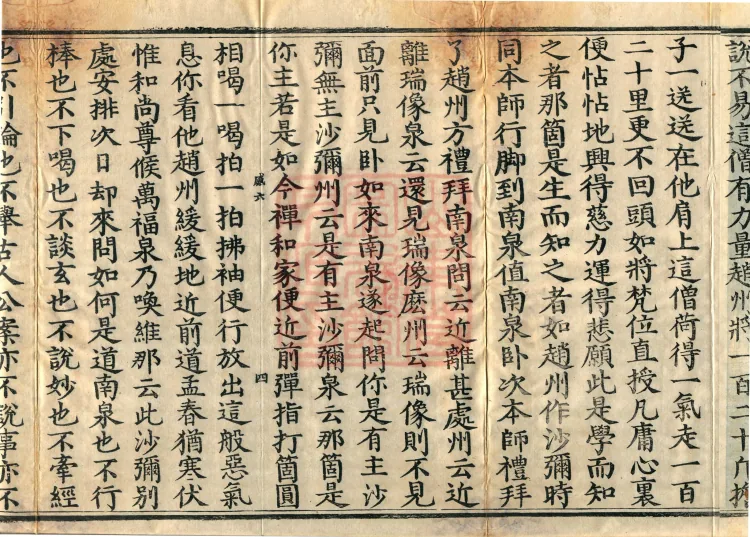 說不易這僧有力量趙州將一百二十斤擔
子一送送在他肩上這僧荷得一氣走一百
二十里更不回頭如將梵位直授凡庸心裏
便怗怗地興得慈力運得悲願此是學而知
之者那箇是生而知之者如趙州作沙彌時
同本師行脚到南泉值南泉卧次本師禮拜
了趙州方禮拜南泉問云近離甚處州云近
離瑞像泉云還見瑞像麽州云瑞像則不見
面前只見卧如來南泉遂起問你是有主沙
彌無主沙彌州云是有主沙彌泉云那箇是
你主若是如今禪和家便近前彈指打箇圓
感六 四
相喝一喝拍一拍拂袖便行放出這般惡氣
息你看他趙州緩緩地近前道孟春猶寒伏
惟和尚尊候萬福泉乃喚維那云此沙彌別
處安排次日却來問如何是道南泉也不行
棒也不下喝也不談玄也不說妙也不牽經
也不引論也不舉古人公案亦不說事亦不